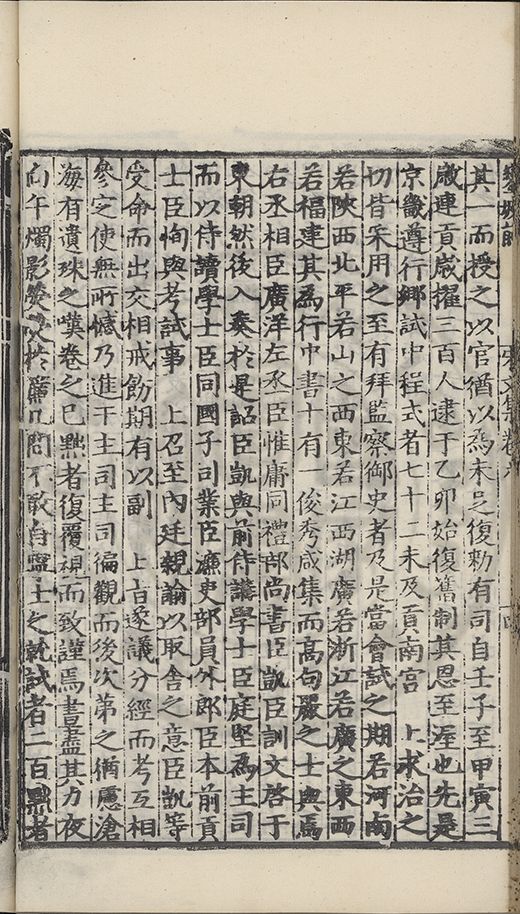 其一而授之以官猶以為未足復勑有司自壬子至甲寅三
歲連貢歲擢三百人逮于乙卯始復舊制其恩至渥也先是
京畿遵行鄉試中程式者七十二未及貢南宮　上求治之
切皆采用之至有拜監察御史者及是當會試之期若河南
若陝西北平若山之西東若江西湖廣若浙江若廣之東西
若福建其為行中書十有一俊秀咸集而高句麗之士與焉
右丞相臣廣洋左丞臣惟庸同禮部尚書臣凱臣訓文啓于
東朝然後入奏於是詔臣凱與前侍講學士臣庭堅為主司
而以侍讀學士臣同國子司業臣濂吏部員外郎臣本前貢
士臣恂與考試事　上召至內廷親諭以取舍之意臣凱等
受命而出交相戒飭期有以副　上旨遂議分經而考互相
參定使無所憾乃進于主司主司徧觀而後次第之猶慮滄
海有遺珠之嘆卷之已黜者復覆視而致謹焉晝盡其力夜
向午燭影熒熒於簾几間不敢自寧士之就試者二百黜者
文集卷六